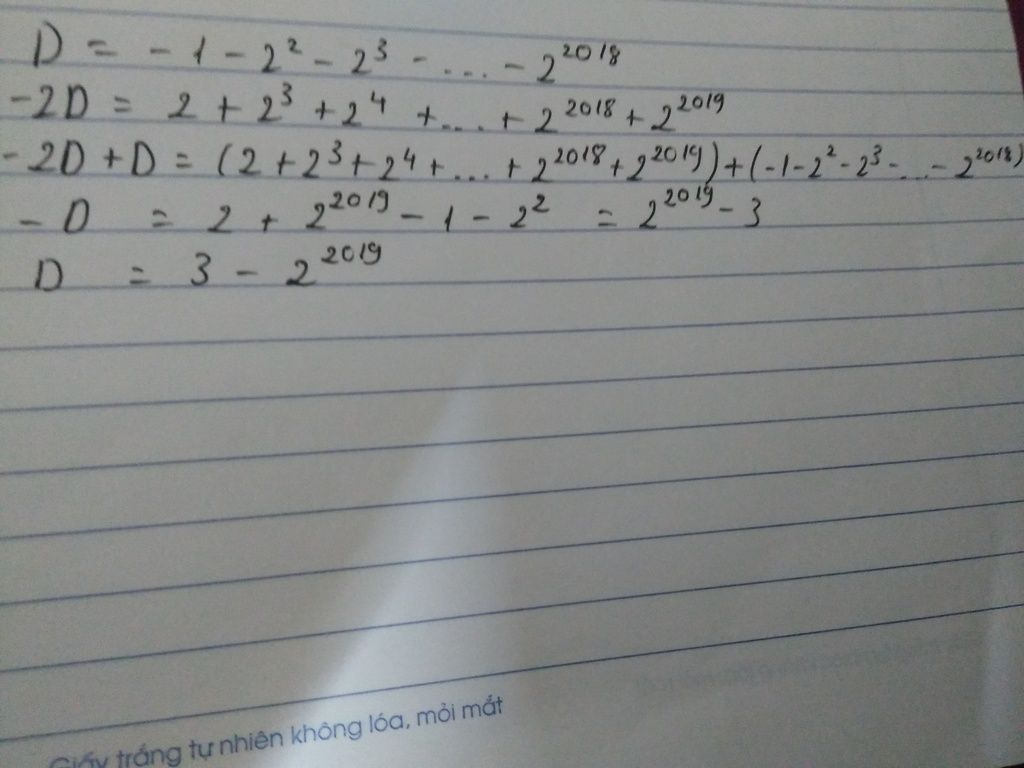 D = - 1 - 2² - 2³ - ... - 2²⁰¹⁸
-2D = 2 + 2³ + 2⁴ + ... + 2²⁰¹⁸ + 2²⁰¹⁹
-2D + D = (2 + 2³ + 2⁴ + ... + 2²⁰¹⁸ + 2²⁰¹⁹) + (-1 - 2² - 2³ - ... - 2²⁰¹⁸)
- D = 2 + 2²⁰¹⁹ - 1 - 2² = 2²⁰¹⁹ - 3
D = 3 - 2²⁰¹⁹
Giấy trắng tự nhiên không lóa, mỏi mắt